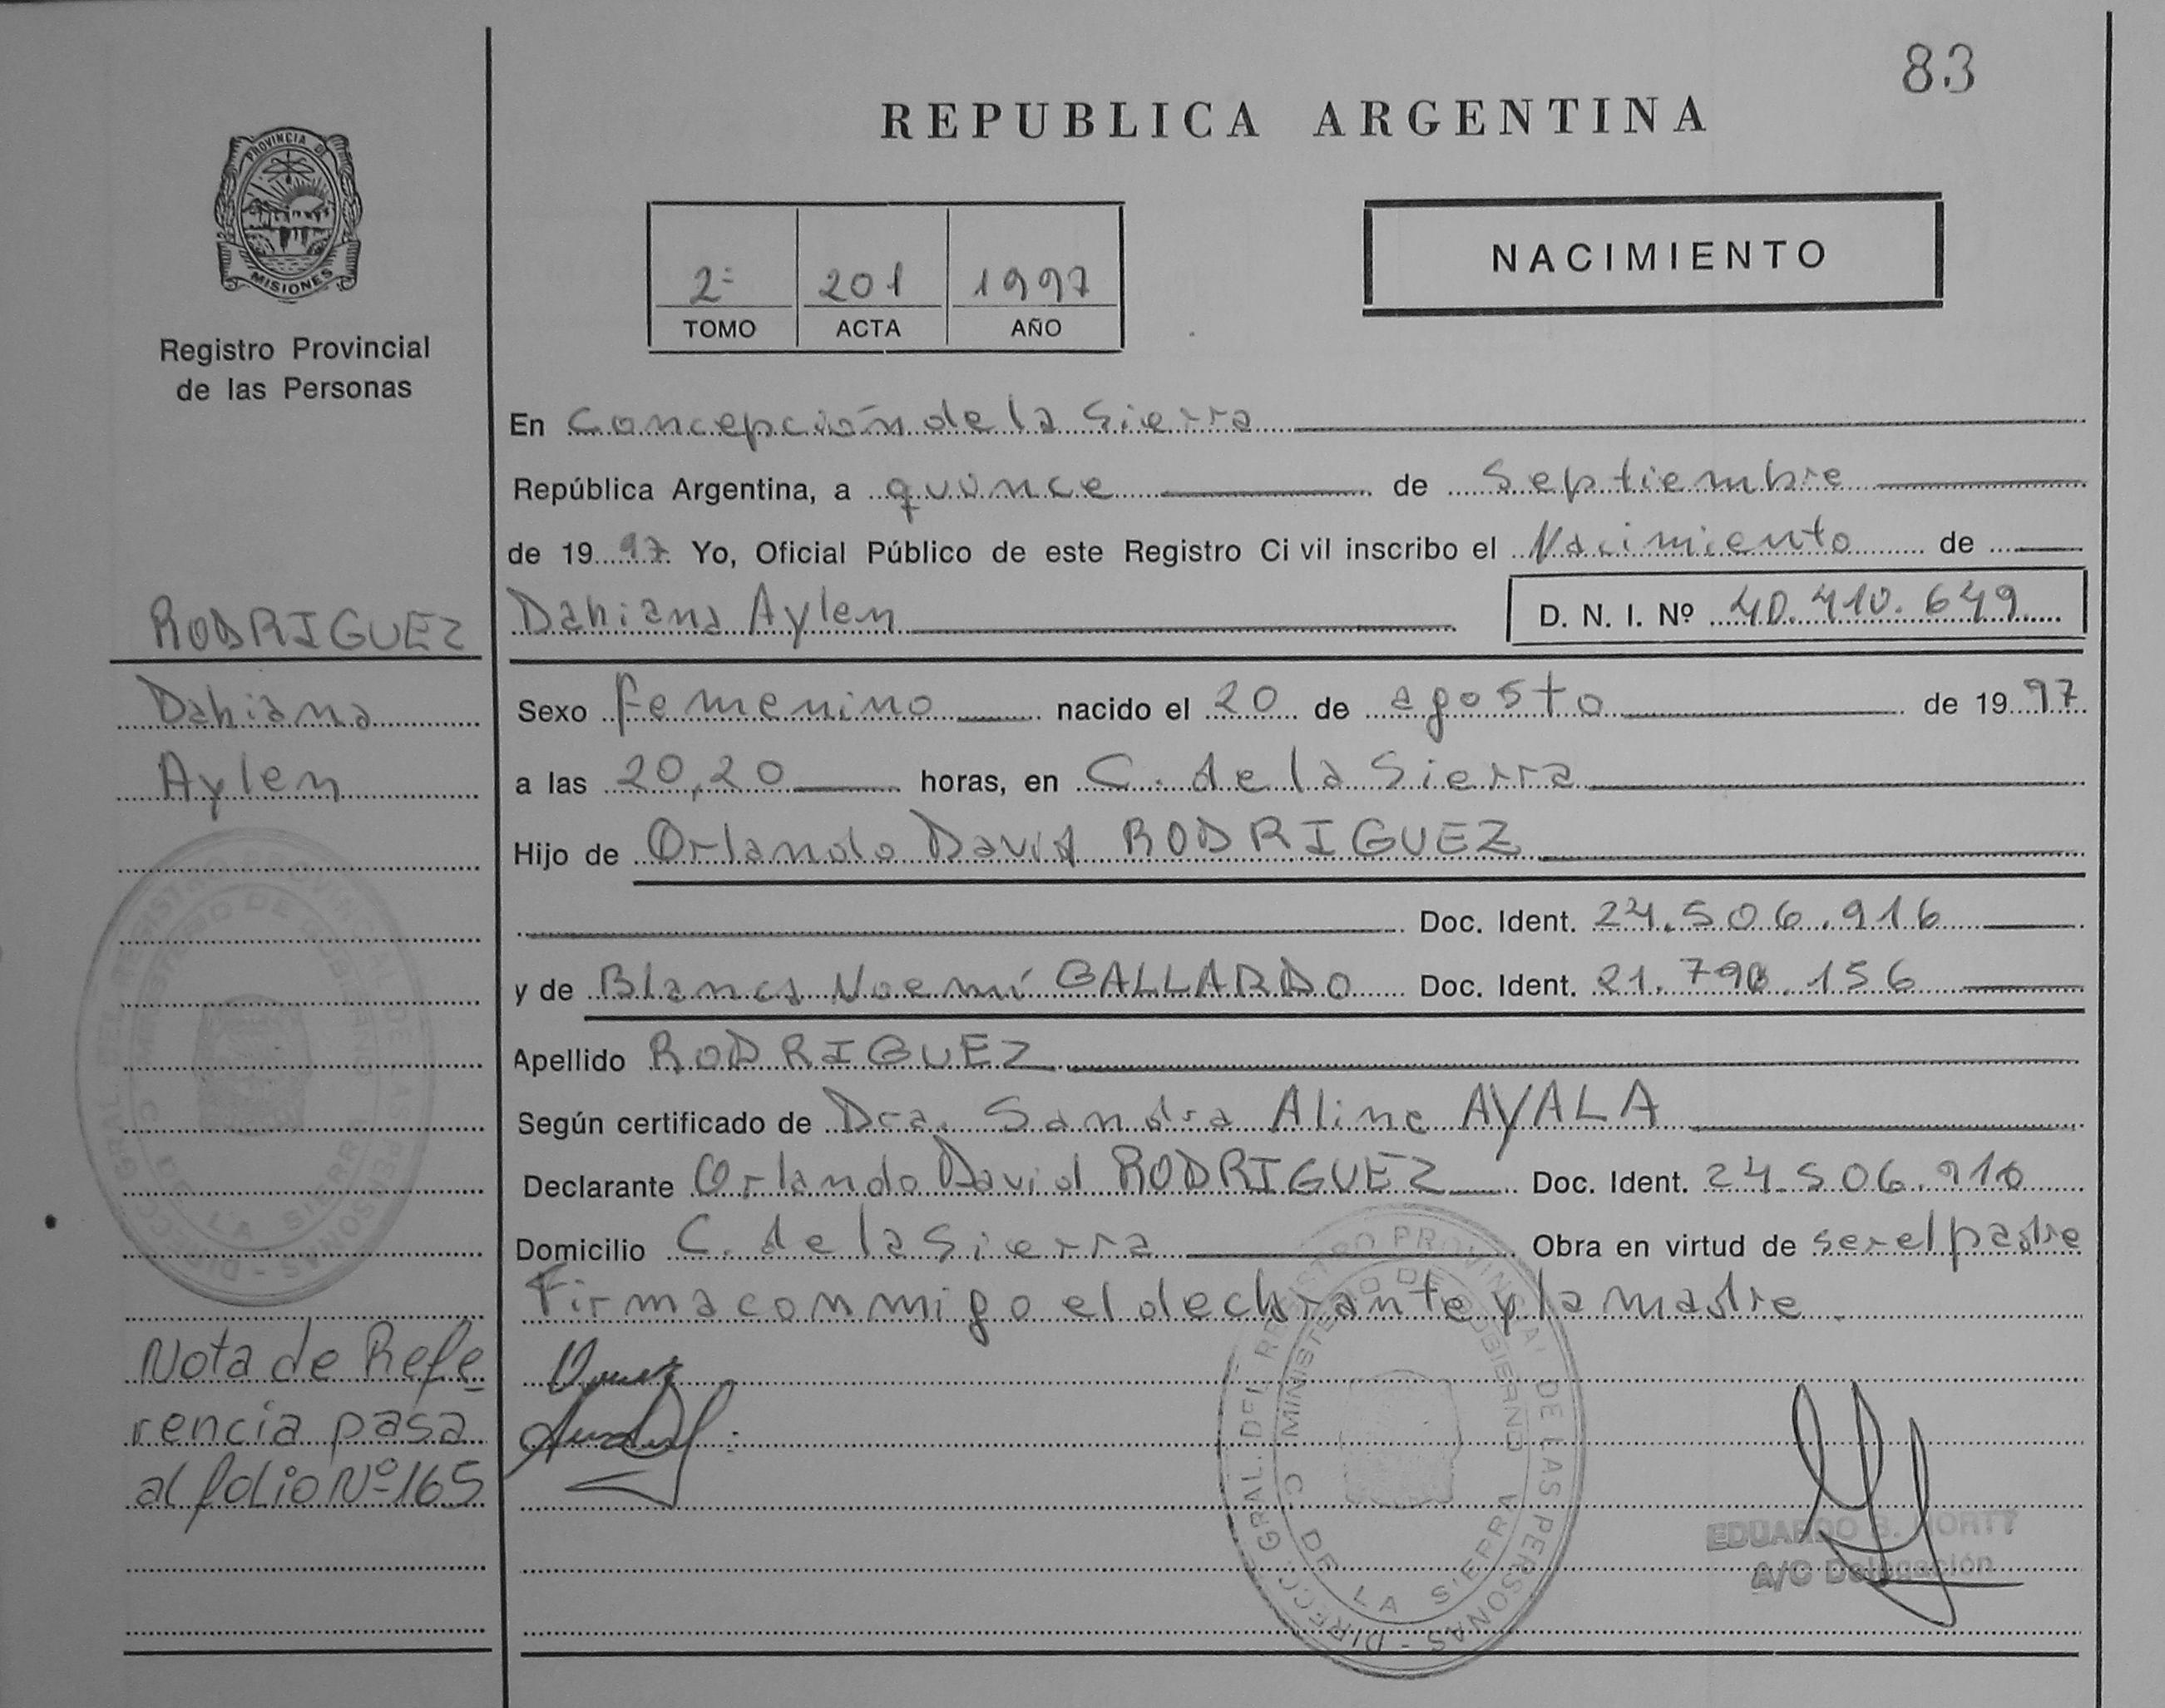 83
REPUBLICA ARGENTINA
PROVINCIA D
MISIONES
Registro Provincial
de las Personas
2º 201 1997
TOMO ACTA AÑO
NACIMIENTO
En Concepción de la Sierra
República Argentina, a quince de Septiembre
de 19 97 Yo, Oficial Público de este Registro Civil inscribo el Nacimiento de
Dahiana Aylen D. N. I. Nº 40.410.649
Sexo femenino nacido el 20 de agosto de 19 97
a las 20,20 horas, en C. de la Sierra
Hijo de Orlando David RODRIGUEZ
Doc. Ident. 24.506.916
y de Blanca Noemí GALLARDO Doc. Ident. 21.790.156
Apellido RODRIGUEZ
Según certificado de Dra. Sandra Aline AYALA
Declarante Orlando David RODRIGUEZ Doc. Ident. 24.506.910
Domicilio C. de la Sierra Obra en virtud de ser el padre
Firma conmigo el declarante y la madre
RODRIGUEZ
Dahiana
Aylen
Nota de Refe
rencia pasa
al folio Nº 165
DIRECC. GRAL. DEL REGISTRO PROVINCIAL DE LAS PERSONAS
MINISTERIO DE GOBIERNO
C. DE LA SIERRA
DIRECC. GRAL. DEL REGISTRO PROVINCIAL DE LAS PERSONAS
MINISTERIO DE GOBIERNO
C. DE LA SIERRA
EDUARDO
A/C Delegación